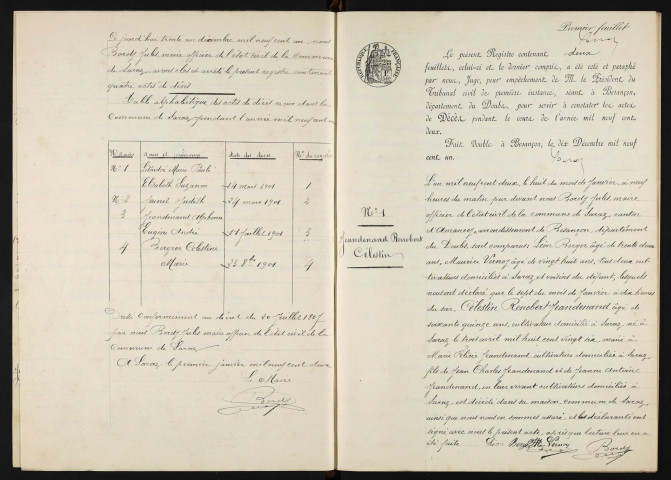 Ce jourd'hui trente un décembre mil neuf cent un nous
Bordy Jules maire officier de l'état civil de la Commune
de Saraz, avons clos et arrêté le présent registre contenant
quatre actes de décès
Table alphabétique des actes de décès reçus dans la
Commune de Saraz pendant l'année mil neuf cent un
Nos Noms et prénoms date du décès No du registre
No 1 Marie Paule
Elisabeth Suzanne 24 mars 1901 1
No 2 Judith 24 mars 1901 2
3 Jeandenand Alphonse
Eugène André juillet 1901 3
4 Bergier Célestine
Marie 8bre 1901 4
conformement au décret du 20 Juillet 1807
par nous Bordy Jules maire officier de l'état civil de la
Commune de Saraz
A Saraz, le premier janvier mil neuf cent deux
Le Maire
Bordy
Premier feuillet
RÉPUBLIQUE FRANÇAISE
Le présent Registre contenant deux
feuillets, celui-ci et le dernier compris, a été coté et paraphé
par nous, Juge, pour empêchement de M. le Président du
Tribunal civil de première instance, séant à Besançon,
département du Doubs, pour servir à constater les actes
de Décès pendant le cours de l'année mil neuf cent
deux.
Fait double à Besançon, le dix Décembre mil neuf
cent un.
No 1
Jeandenand Renobert
Célestin
L'an mil neuf cent deux, le huit du mois de Janvier, à neuf
heures du matin par devant nous Bordy Jules maire
officier de l'état civil de la commune de Saraz, canton
d'Amancey, arrondissement de Besançon, département
du Doubs, sont comparus Léon Bergier âgé de trente deux
ans, Maurice Vernoy âgé de vingt huit ans, tous deux cul-
tivateurs domiciliés à Saraz et voisins du défunt, lesquels
nous ont déclaré que le sept du mois de Janvier à dix heures
du soir, Célestin Renobert Jeandenand âgé de
soixante quinze ans, cultivateur domicilié à Saraz, né à
Saraz le trois avril mil huit cent vingt six, marié à
Marie Jeandenand cultivatrice domiciliée à Saraz,
fils de Jean Charles Jeandenand et de Jeanne Antoine
Jeandenand, en leur vivant cultivateurs domiciliés à
Saraz, est décédé dans sa maison, commune de Saraz,
ainsi que nous nous en sommes assuré et les déclarants ont
signé avec nous le présent acte, après que lecture leur en a
été faite Vernoy Bordy